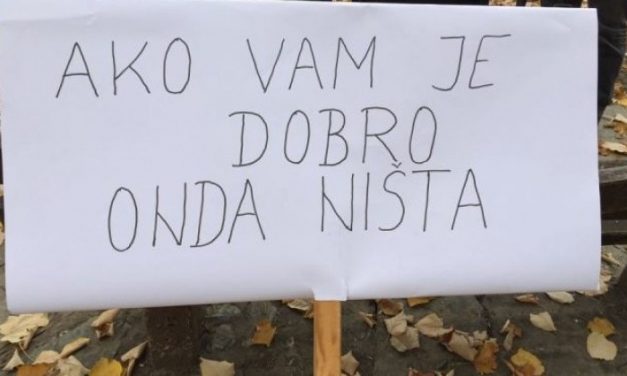 AKO VAM JE
DOBRO
ONDA NIŠTA